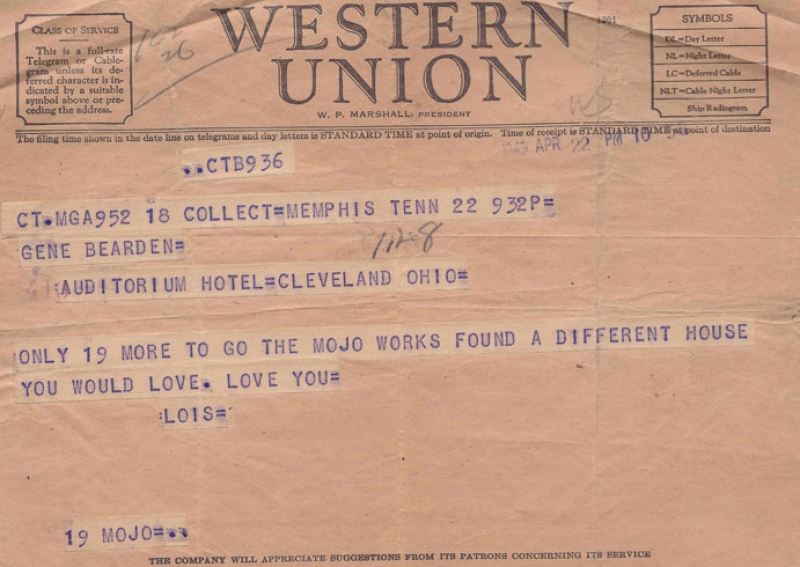 CLASS OF SERVICE
This is a full-rate
Telegram or Cable-
gram unless its de-
ferred character is in-
dicated by a suitable
symbol above or pre-
ceding the address.
WESTERN
UNION
W. P. MARSHALL, PRESIDENT
1201
SYMBOLS
DL=Day Letter
NL=Night Letter
LC=Deferred Cable
NLT=Cable Night Letter
Ship Radiogram
The filing time shown in the date line on telegrams and day letters is STANDARD TIME at point of origin. Time of receipt is STANDARD TIME at point of destination
1949 APR 22 PM 10
..CTB936
CT.MGA952 18 COLLECT=MEMPHIS TENN 22 932P=
GENE BEARDEN=
112-8
AUDITORIUM HOTEL=CLEVELAND OHIO=
ONLY 19 MORE TO GO THE MOJO WORKS FOUND A DIFFERENT HOUSE
YOU WOULD LOVE. LOVE YOU=
:LOIS=
19 MOJO=..
THE COMPANY WILL APPRECIATE SUGGESTIONS FROM ITS PATRONS CONCERNING ITS SERVICE